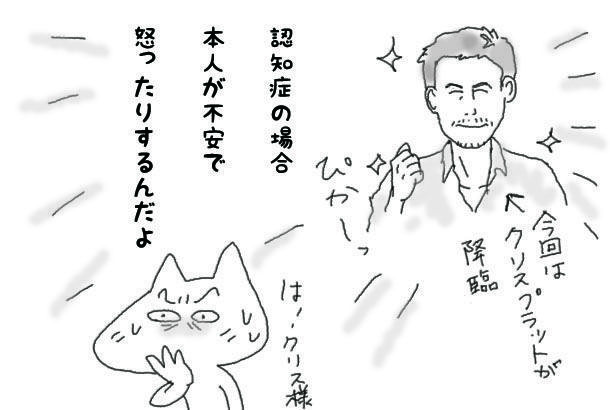 認知症の場合
本人が不安で
怒ったりするんだよ
ぴかーっ
今回は
クリスプラットが
降臨
はー、クリス様